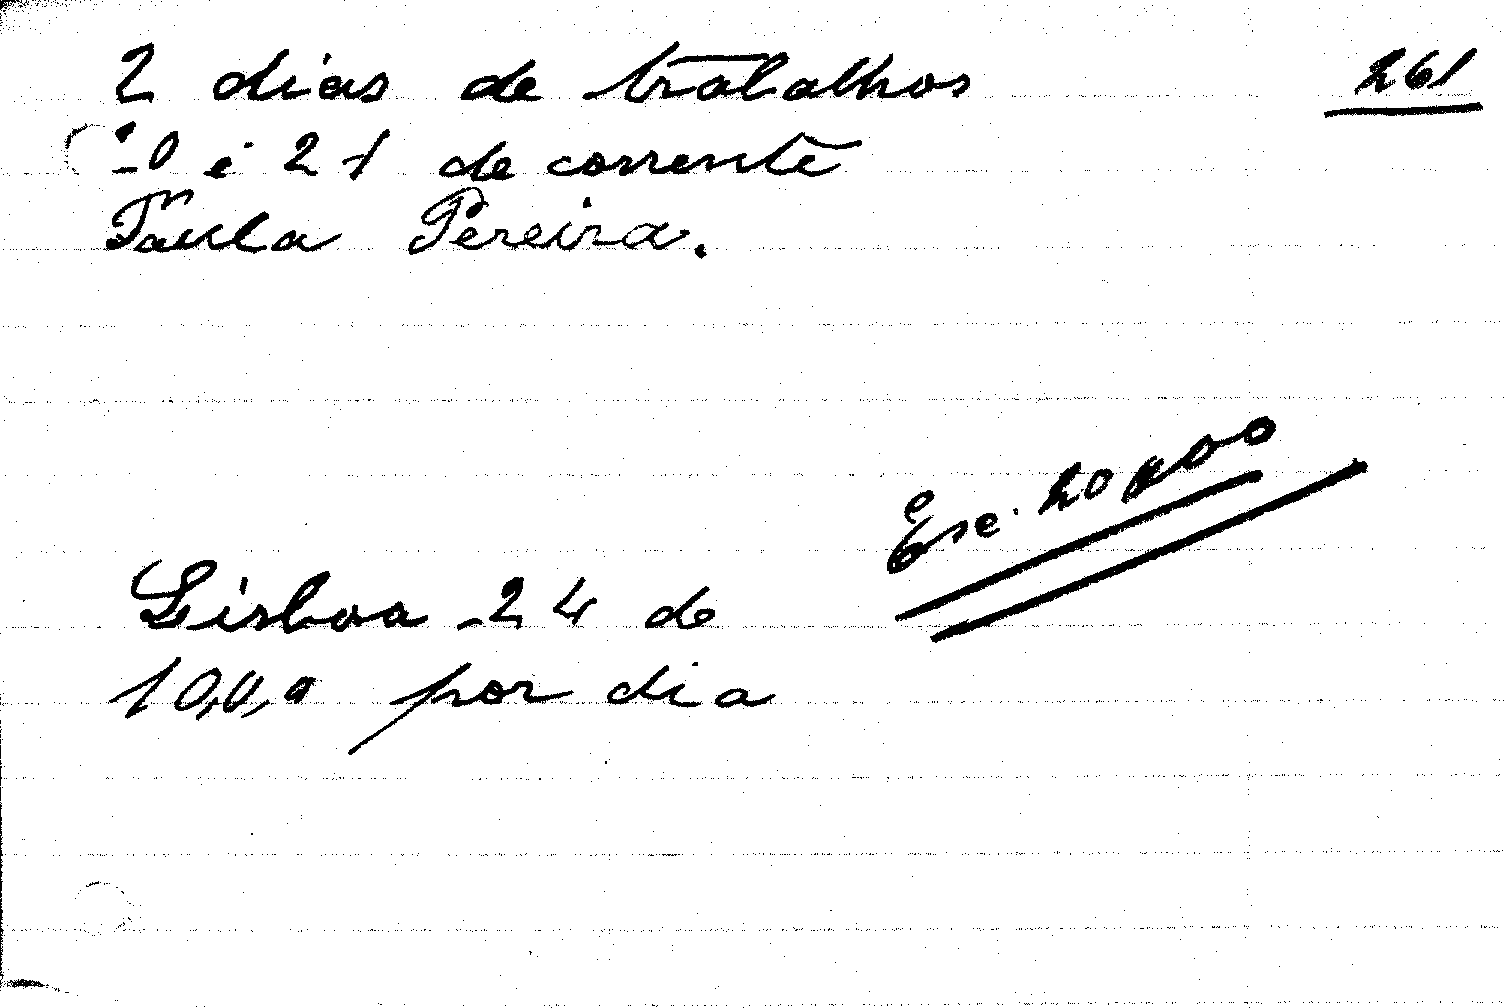 2 dias de trabalhos
261
20 e 21 de corrente
Paula Pereira.
Esc. 20$00
Lisboa 24 de
10,0,0 por dia